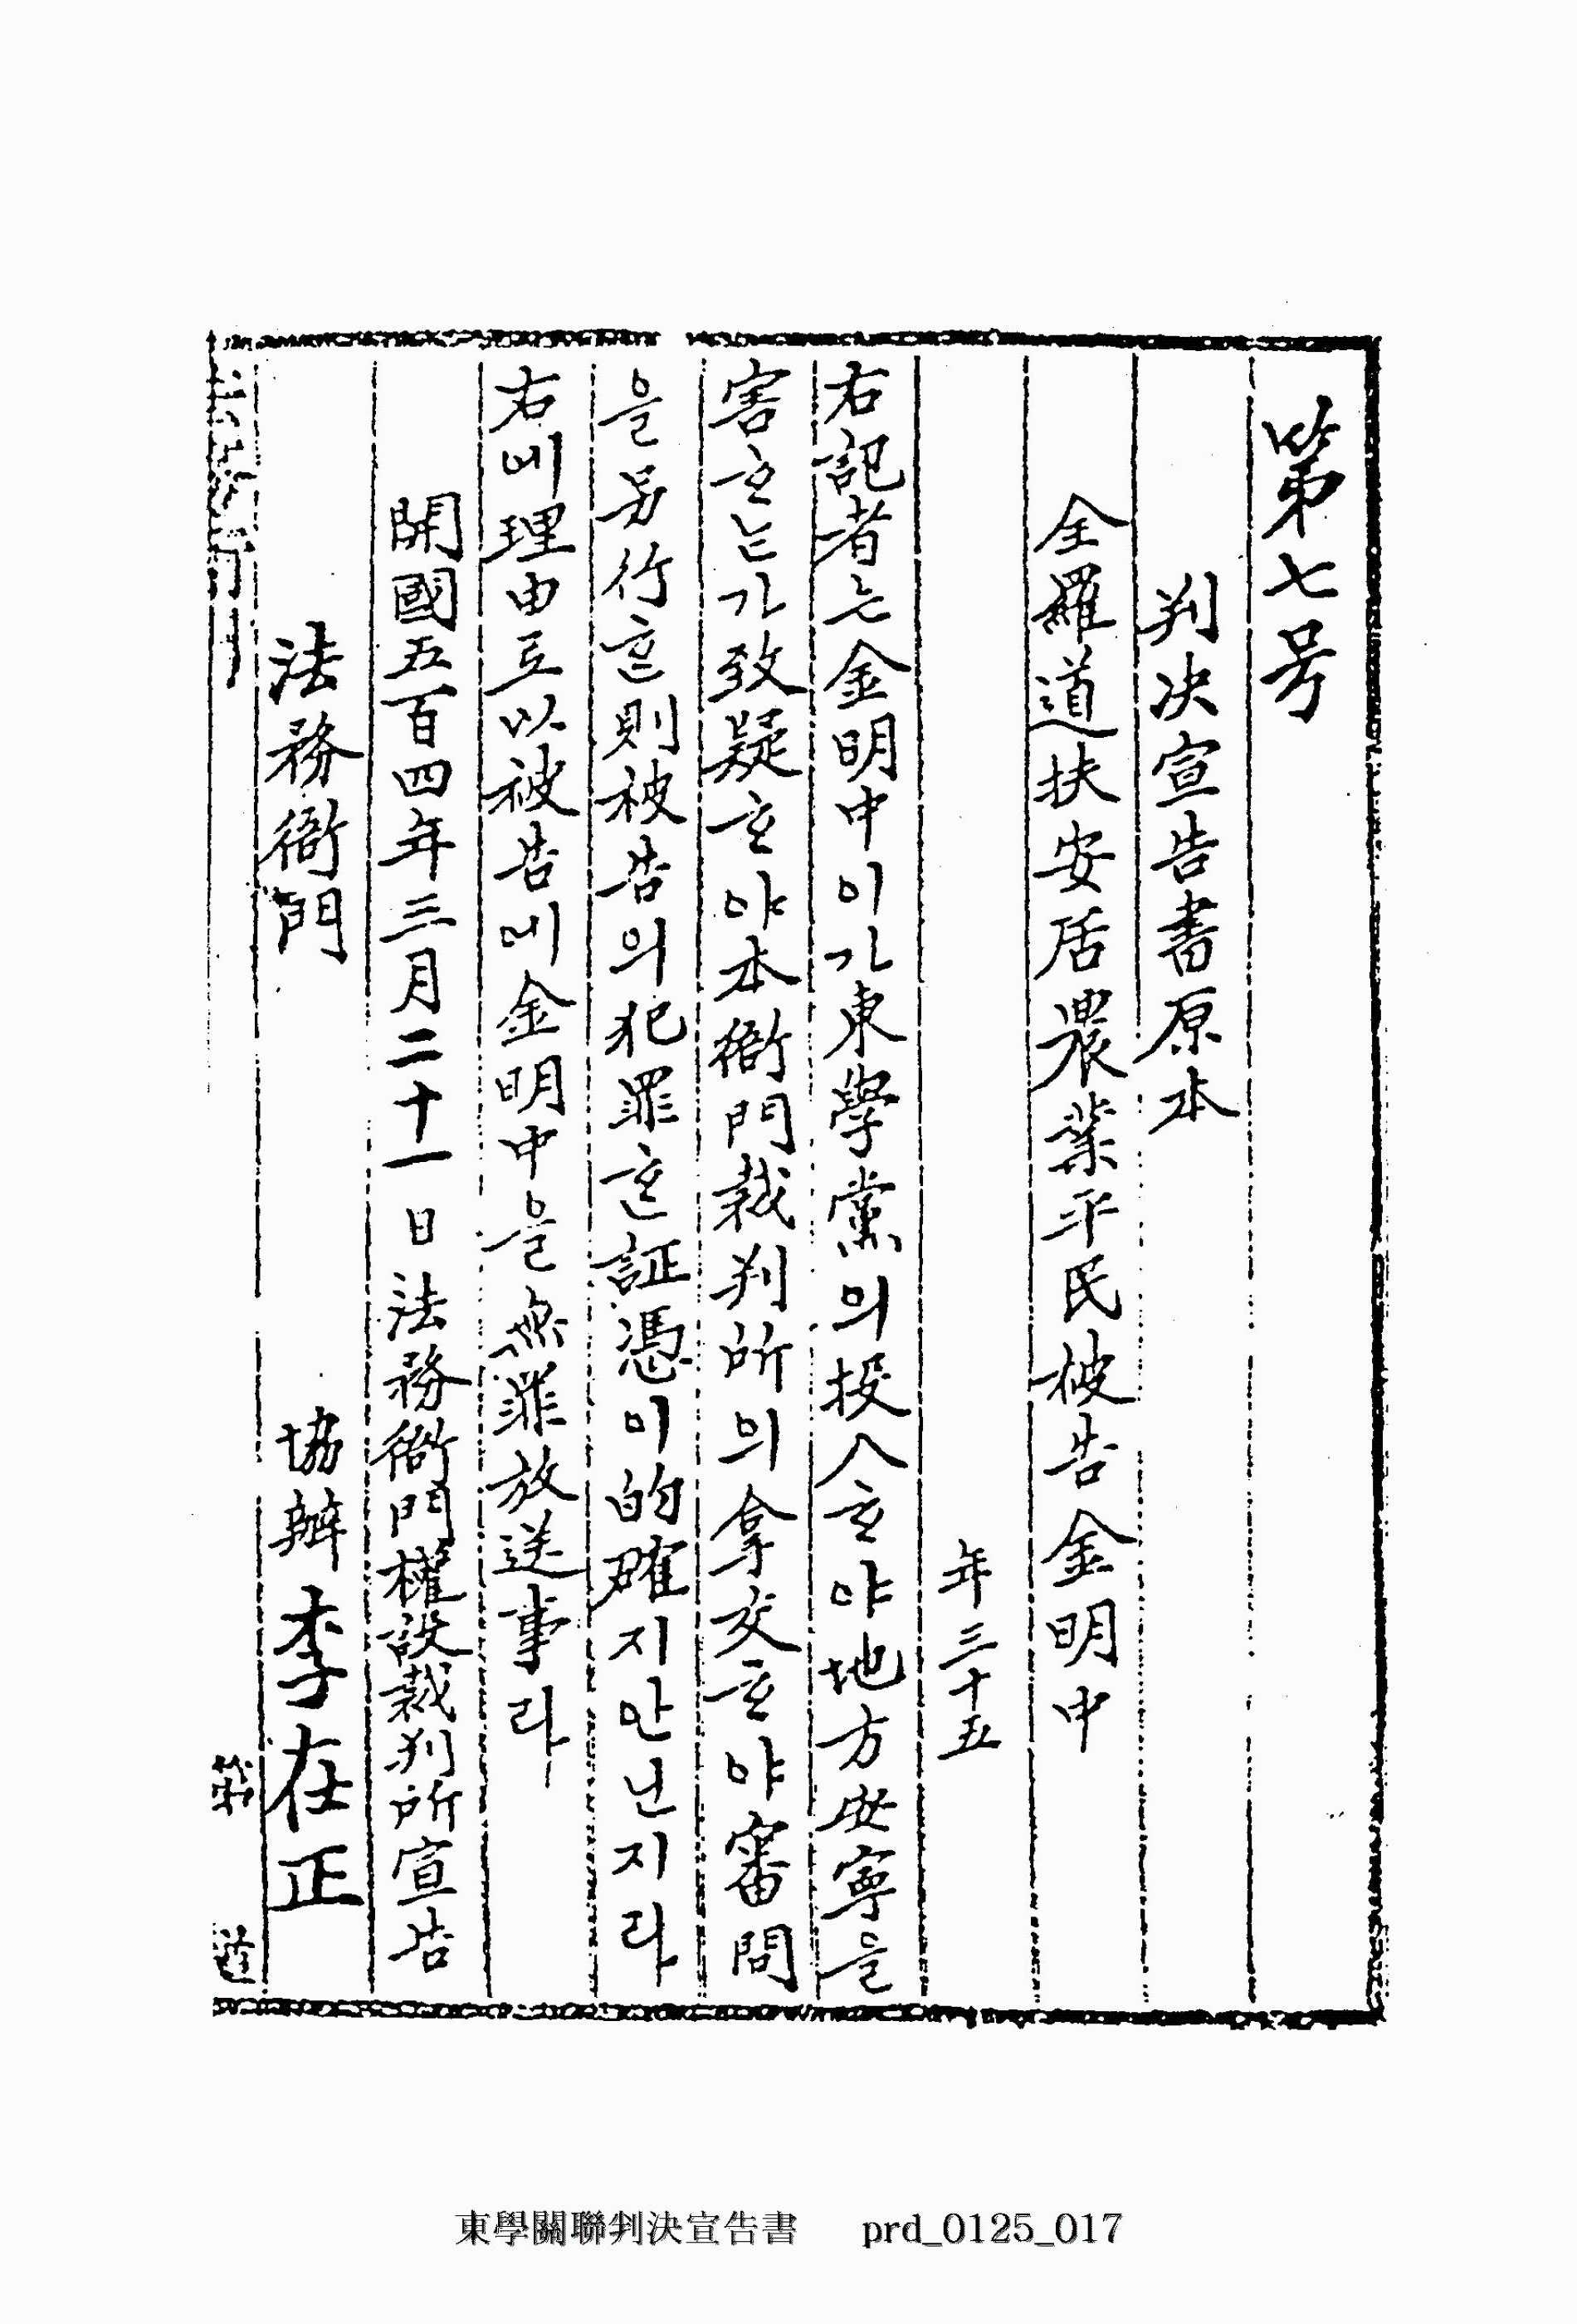 第七号
判決宣告書原本
全羅道扶安居農業平民被告金明中
年三十五
右記者는金明中이가東學黨의投入ᄒᆞ야地方安寧을
害ᄒᆞᄂᆞᆫ가致疑ᄒᆞ야本衙門裁判所의拿交ᄒᆞ야審問
을另行ᄒᆞᆫ則被告의犯罪ᄒᆞᆫ証憑이的確지안닌지라
右에理由로以被告에金明中을無罪放送事라
開國五百四年三月二十一日法務衙門權設裁判所宣告
法務衙門 協辦李在正
東學關聯判決宣告書 prd_0125_017